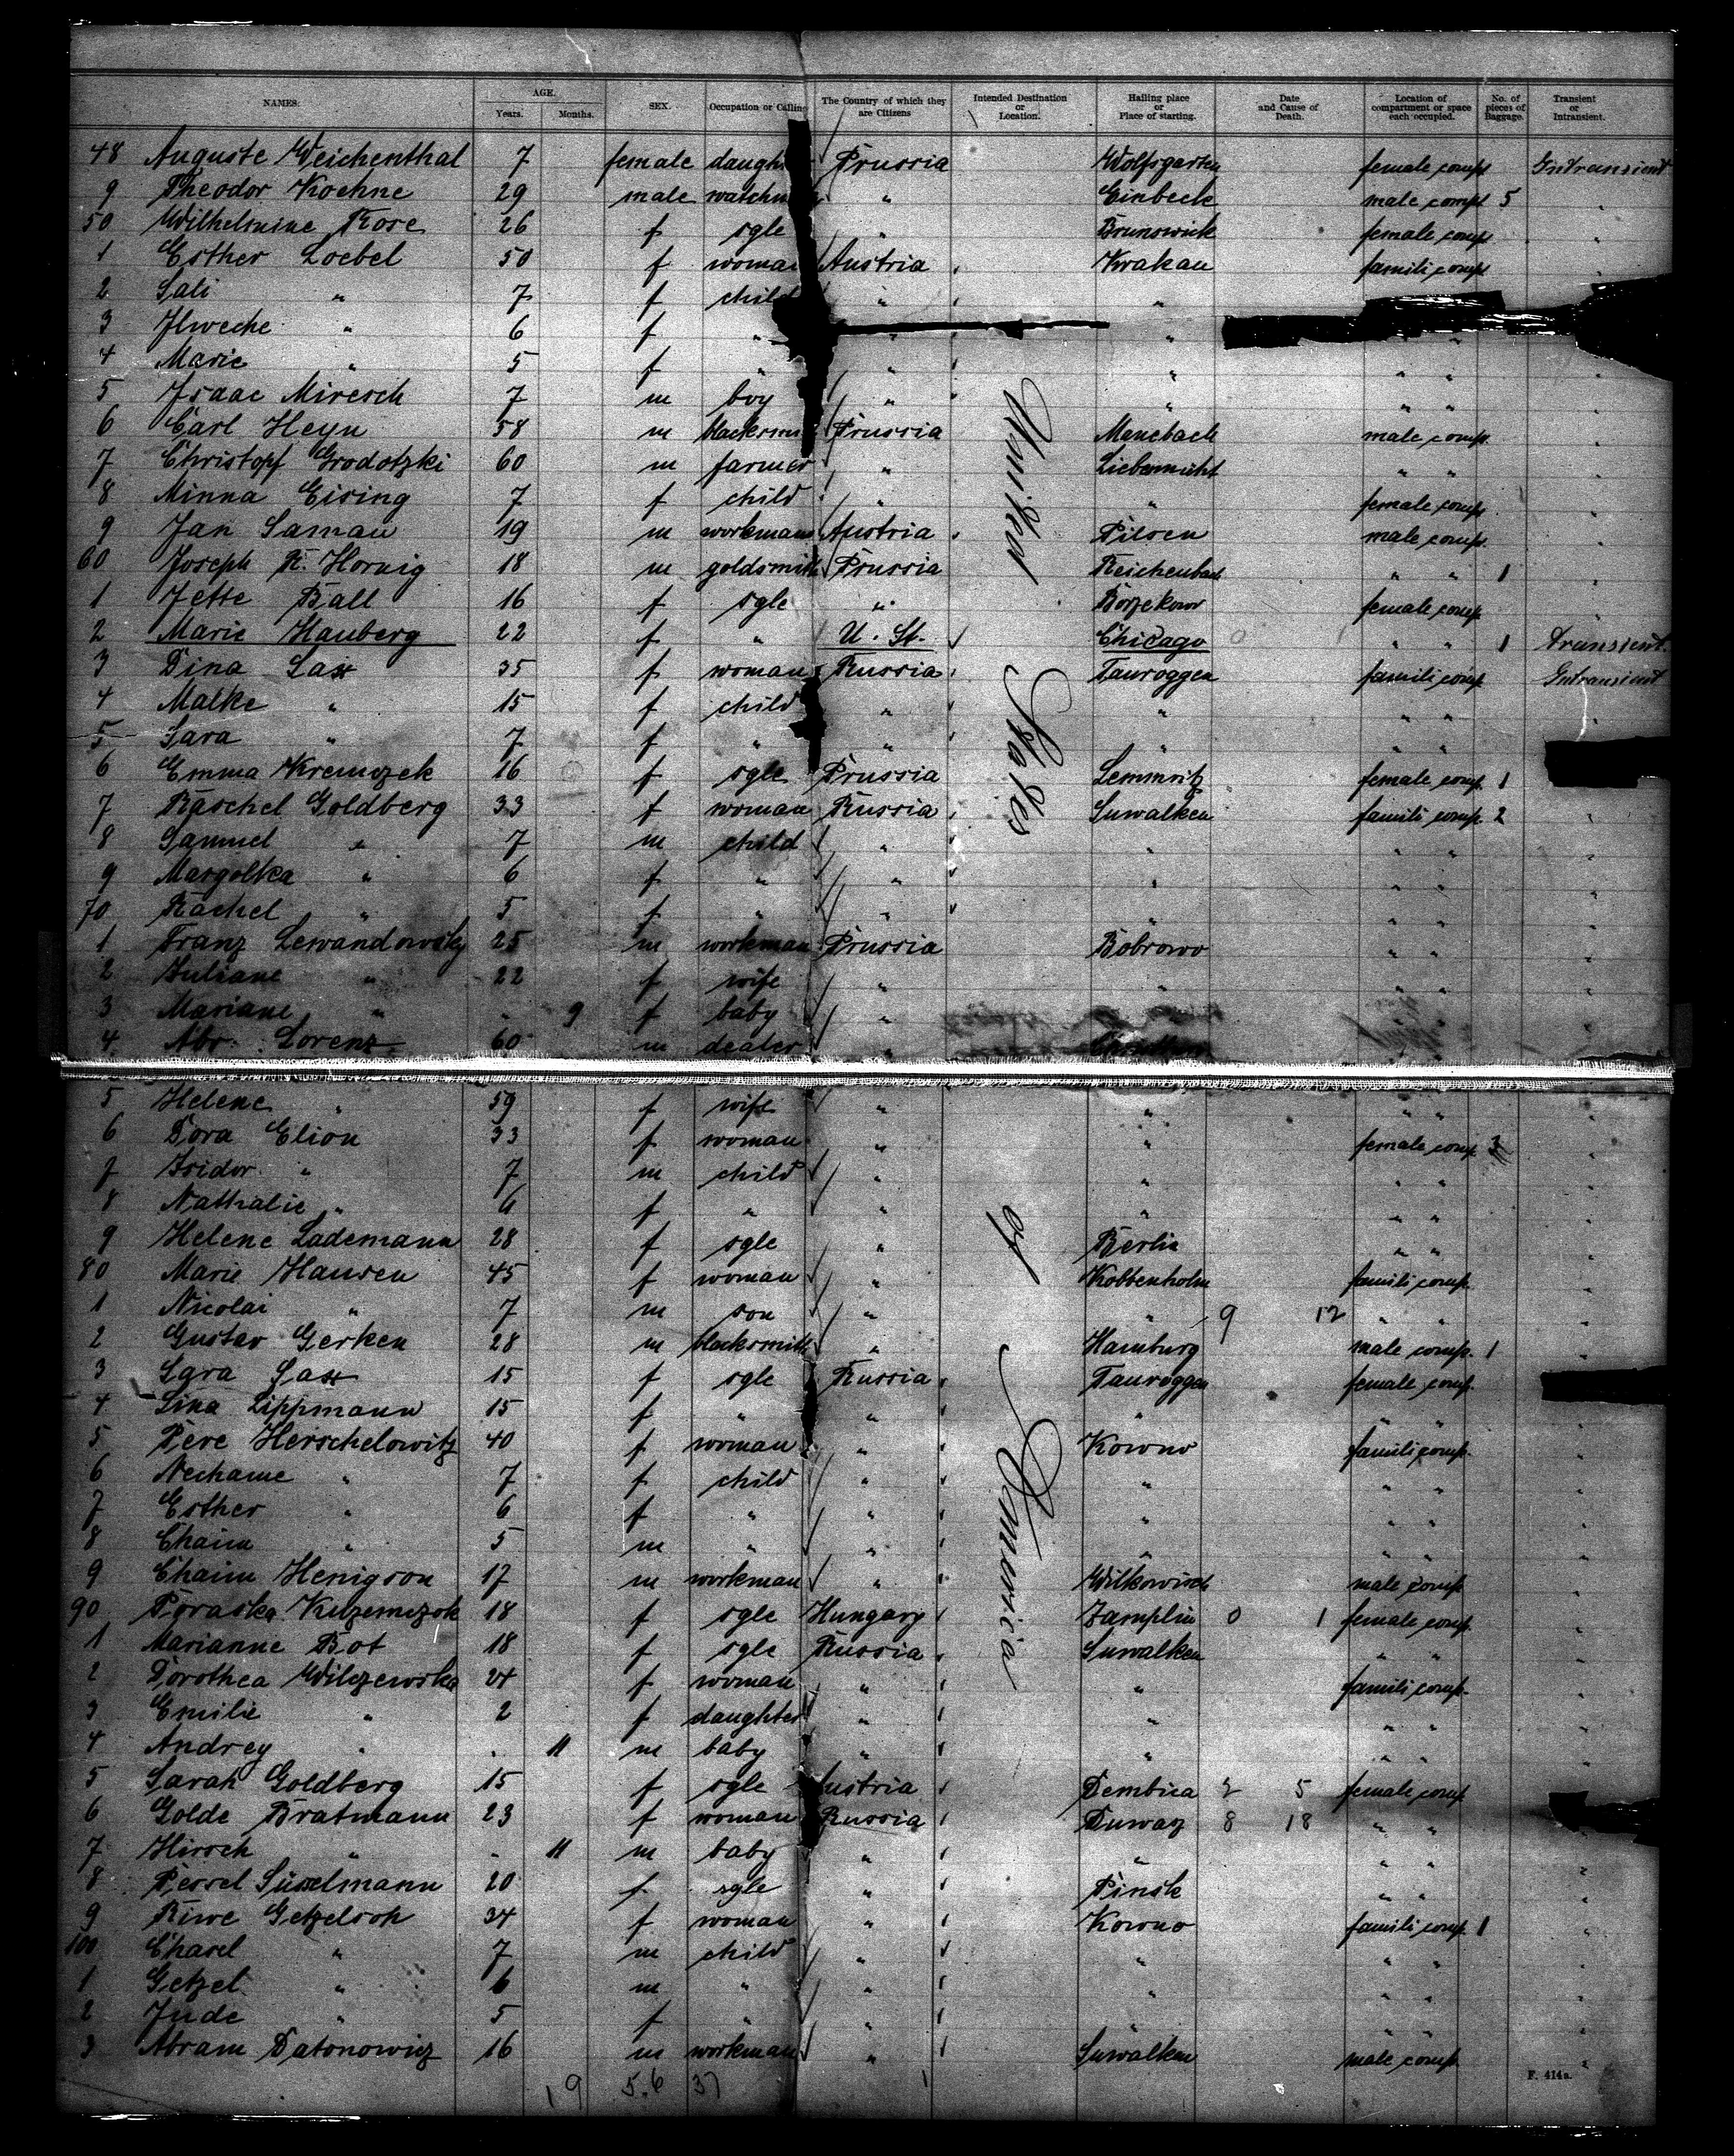 NAMES. AGE. Years. Months. SEX. Occupation or Calling The Country of which they are Citizens Intended Destination or Location. Hailing place or Place of starting. Date and Cause of Death. Location of compartment or space each occupied. No. of pieces of Baggage. Transient or Intransient.
48 Auguste Weichenthal 7 female daugh Prussia Wolfsgarten female comp Intransient
9 Theodor Koehne 29 male watchm " Einbeck male compt 5 "
50 Wilhelmine Rose 26 f sgle " Brunswick female comp "
1 Esther Loebel 50 f woman Austria Krakau famili comp "
2 Sali " 7 f child " "
3 " 6 f " " " "
4 Marie " 5 f " " " " " "
5 Isaac Miresch 7 m boy " " " " "
6 Carl Heyn 58 m blacksmi Prussia Manebach male comp. "
7 Christopf Grodotzki 60 m farmer " Liebemühl " " "
8 Minna Eising 7 f child " " female comp. "
9 Jan Saman 19 m workman Austria Pilsen male comp. "
60 Joseph R. Hornig 18 m goldsmith Prussia Reichenbach " " 1 "
1 Jette Ball 16 f sgle " female comp "
2 Marie Hauberg 22 f " U. St. Chicago 0 " " 1 Transient.
3 Dina Sax 35 f woman Russia Tauroggen famili comp Intransient
4 Malke " 15 f child " " " " "
5 Sara " 7 f " " " " "
6 Emma Kremczek 16 f sgle Prussia female comp. 1
7 Raschel Goldberg 33 f woman Russia Suwalken famili comp. 2 "
8 Samuel " 7 m child " " " " "
9 Margolka " 6 f " " " " " "
70 Rachel " 5 f " " " " " "
1 Franz Lewandowsky 25 m workman Prussia Bobrowo " " "
2 Juliane " 22 f wife " " " " "
3 Mariane " " 9 f baby " " "
4 Abr. Lorenz 60 m dealer "
5 Helene " 59 f wife " " " " "
6 Dora Elion 33 f woman " " female comp. 3 "
7 Isidor " 7 m child " " " " "
8 Nathalie " 6 f " " " " " "
9 Helene Lademann 28 f sgle " Berlin " " "
80 Marie Hansen 45 f woman " Kobbenholm famili comp. "
1 Nicolai " 7 m son " " 9 12 " " "
2 Gustav Gerken 28 m blacksmith " Hamburg male comp. 1 "
3 Sara Sax 15 f sgle Russia Tauroggen female comp.
4 Lina Lippmann 15 f " " " " " "
5 Pere Herschelowitz 40 f woman " Kowno famili comp. "
6 Nechame " 7 f child " " " " "
7 Esther " 6 f " " " " " "
8 Chaim " 5 m " " " " " "
9 Chaim Henigson 17 m workman " Wilkowisch male comp "
90 Paraska 18 f sgle Hungary Zamplin 0 1 female comp. "
1 Marianne Bot 18 f sgle Russia Suwalken " " "
2 Dorothea Wilczewska 24 f woman " " famili comp. "
3 Emilie " 2 f daughter " " " " "
4 Andrey " " 11 m baby " " " " "
5 Sarah Goldberg 15 f sgle Austria Dembica 2 5 female comp
6 Golde Bratmann 23 f woman Russia 8 18 " " "
7 Hirsch " " 11 m baby " " " " "
8 Perrel Süsselmann 20 f sgle " Pinsk " " "
9 Riwe Getzelsoh 34 f woman " Kowno famili comp. 1 "
100 Chasel " 7 m child " " " " "
1 Getzel " 6 m " " " " " "
2 Jude " 5 f " " " " " "
3 Abram Datonowicz 16 m workman " Suwalken male comp. "
United States of America
19 5.6 37
F. 414a.